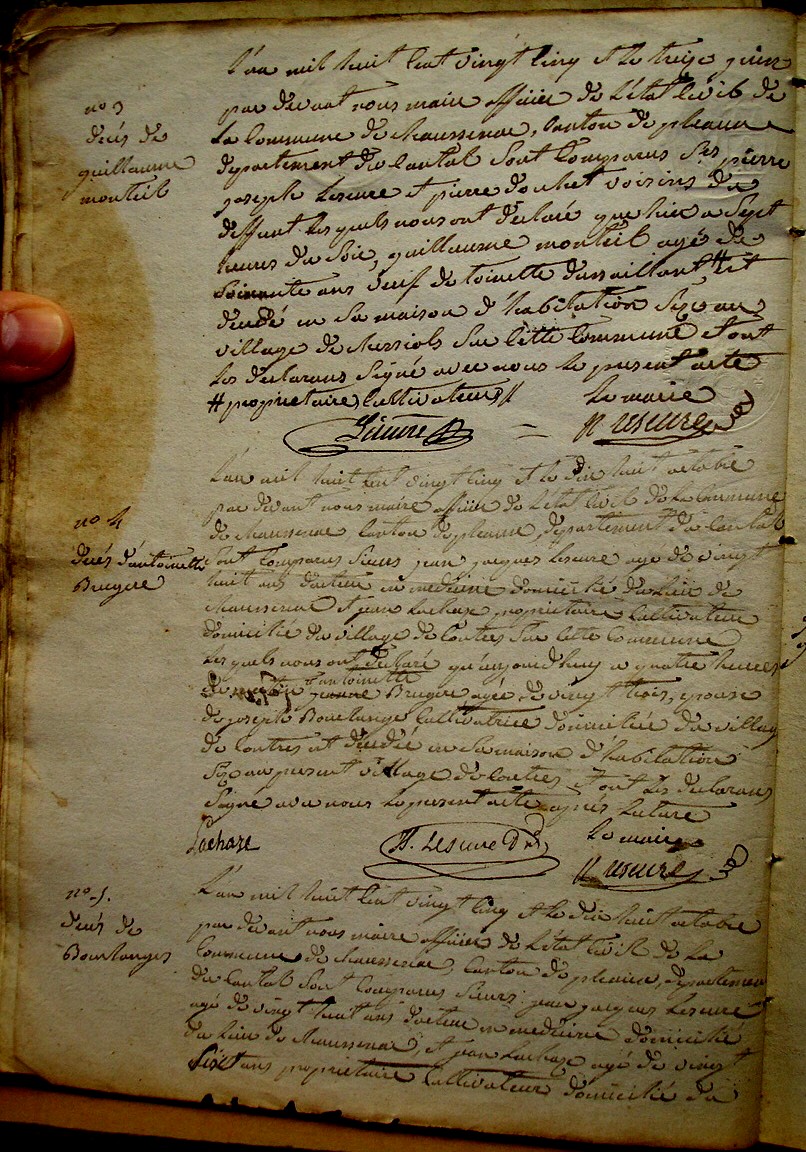 L'an mil huit cent vingt cinq et le treize juin
no 3
décés de
guillaume
monteil
par devant nous maire officier de l'état civil de
la Commune de Chaussenac, Canton de pleaux
departement du Cantal sont Comparus Srs pierre
joseph Lescure et pierre douhet voisins du
deffunt lesquels nous ont declaré que hier a Sept
heures du Soir, guillaume monteil agé de
Soixante ans veuf de toinette # est
decedé en Sa maison d'habitation Size au
village de Sur Cette Commune et ont
les declarans Signé avec nous le present acte
# propriétaires Cultivateurs // Le maire
Lescure
no 4
decés d'antoinette
Brugere
L'an mil huit cent vingt cinq et le dix huit octobre
par devant nous maire officier de l'état Civil de la Commune
de Chaussenac Canton de pleaux, departement du Cantal
Sont Comparus Sieurs jean jacques Lescure age de vingt
huit ans docteur en medecine domicilié du lieu de
Chaussenac et jean Lachaze propriétaire Cultivateur
domicilié du village de Contres Sur Cette Commune
Lesquels nous ont declaré qu'aujourd'huy a quatre heures
du matin antoinette Brugere agée de vingt trois, epouse
de joseph Boulange Cultivatrice domiciliée du village
de Contres est décédée en Sa maison d'habitation
Size au present village de Contres et ont les declarans
Signé avec nous le present acte après lecture
Lachaze Lescure D.m. Le maire
Lescure
no 5.
decés de
Boulanges
L'an mil huit cent vingt cinq et le dix huit octobre
par devant nous maire officier de l'état Civil de la
Commune de Chaussenac, Canton de pleaux, departement
du Cantal Sont Comparus Sieurs jean jacques Lescure
agé de vingt huit ans docteur en medecine domicilié
du lieu de Chaussenac, et jean Lachaze agé de vingt
Sixt ans propriétaire Cultivateur domicilié du